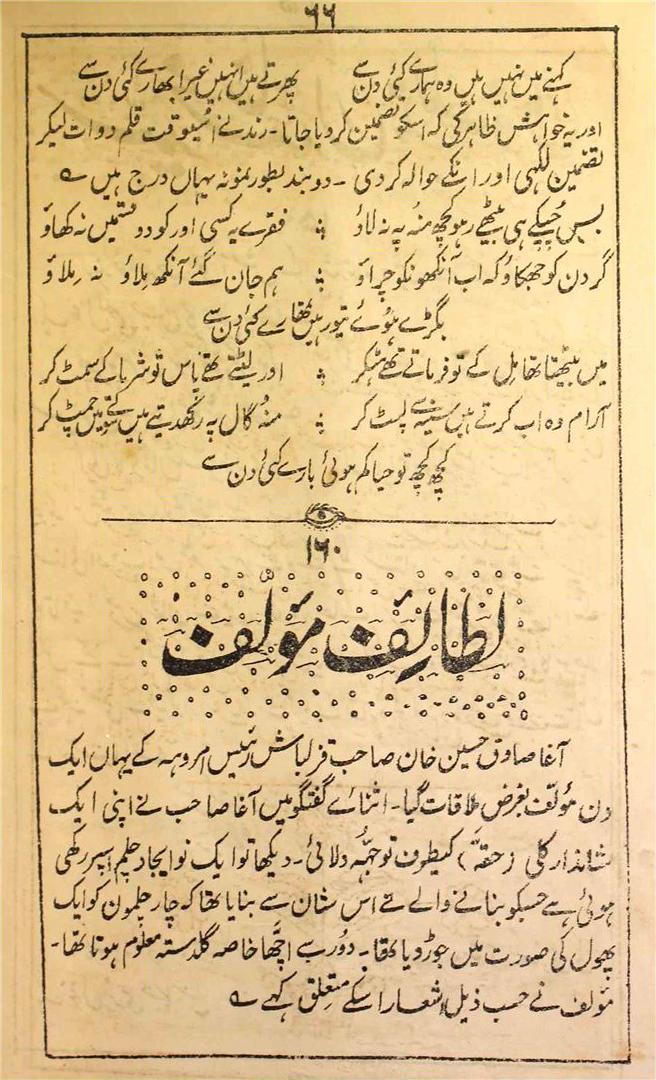 ۶۶
کہنے میں نہیں ہیں وہ ہمارے کئی دن سے پھرتے ہیں انہیں غیر ابھارے کئی دن سے
اور یہ خواہش ظاہر کی کہ اسکو تضمین کر دیا جاتا۔ رند نے اُسیوقت قلم دوات لیکر
تضمین لکھی اور انکے حوالہ کر دی ۔ دو بند بطور نمونہ یہاں درج ہیں ؎
بس چُپکے ہی بیٹھے رہو کچھ منُہ پہ نہ لاؤ ؛ فقرے یہ کسی اور کو دو قسمیں نہ کھاؤ
گردن کو جھکاؤ کہ اب آنکھونکو چراؤ ؛ ہم جان گئے آنکھ مِلاؤ نہ مِلاؤ
بگڑے ہوُئے تیور ہیں تمھارے کئی دن سے
میں بیٹھتا تھا مِل کے تو فرماتے تھے ہٹکر ؛ اور لیٹتے تھے پاس تو شرما کے سمٹ کر
آرام وہ اب کرتے ہیں سینہ سے لپٹ کر ؛ منہُ گال پہ رکھدیتے ہیں سوتے میں چمٹ کر
کچھ کچھ تو حیا کم ہوئی بارے کئی دن سے
۱۶۰
لطائف مؤلّف
آغا صادق حسین خان صاحب قزلباش رئیس امروہہ کے یہاں ایک
دن مؤلف بغرض ملاقات گیا۔ اثنائے گفتگو میں آغا صاحب نے اپنی ایک
شاندار کلی (حقہ) کیطرف توجہّ دلائی۔ دیکھا تو ایک نو ایجاد چلم اسپر رکھی
ہوئی ہے جسکو بنانے والے نے اس شان سے بنایا تھا کہ چار چلمون کو ایک
پھول کی صورت میں جوڑ دیا تھا۔ دوُر سے اچھّا خاصہ گلدستہ معلوم ہوتا تھا۔
مؤلف نے حسب ذیل اشعار اسکے متعلق کہے ؎